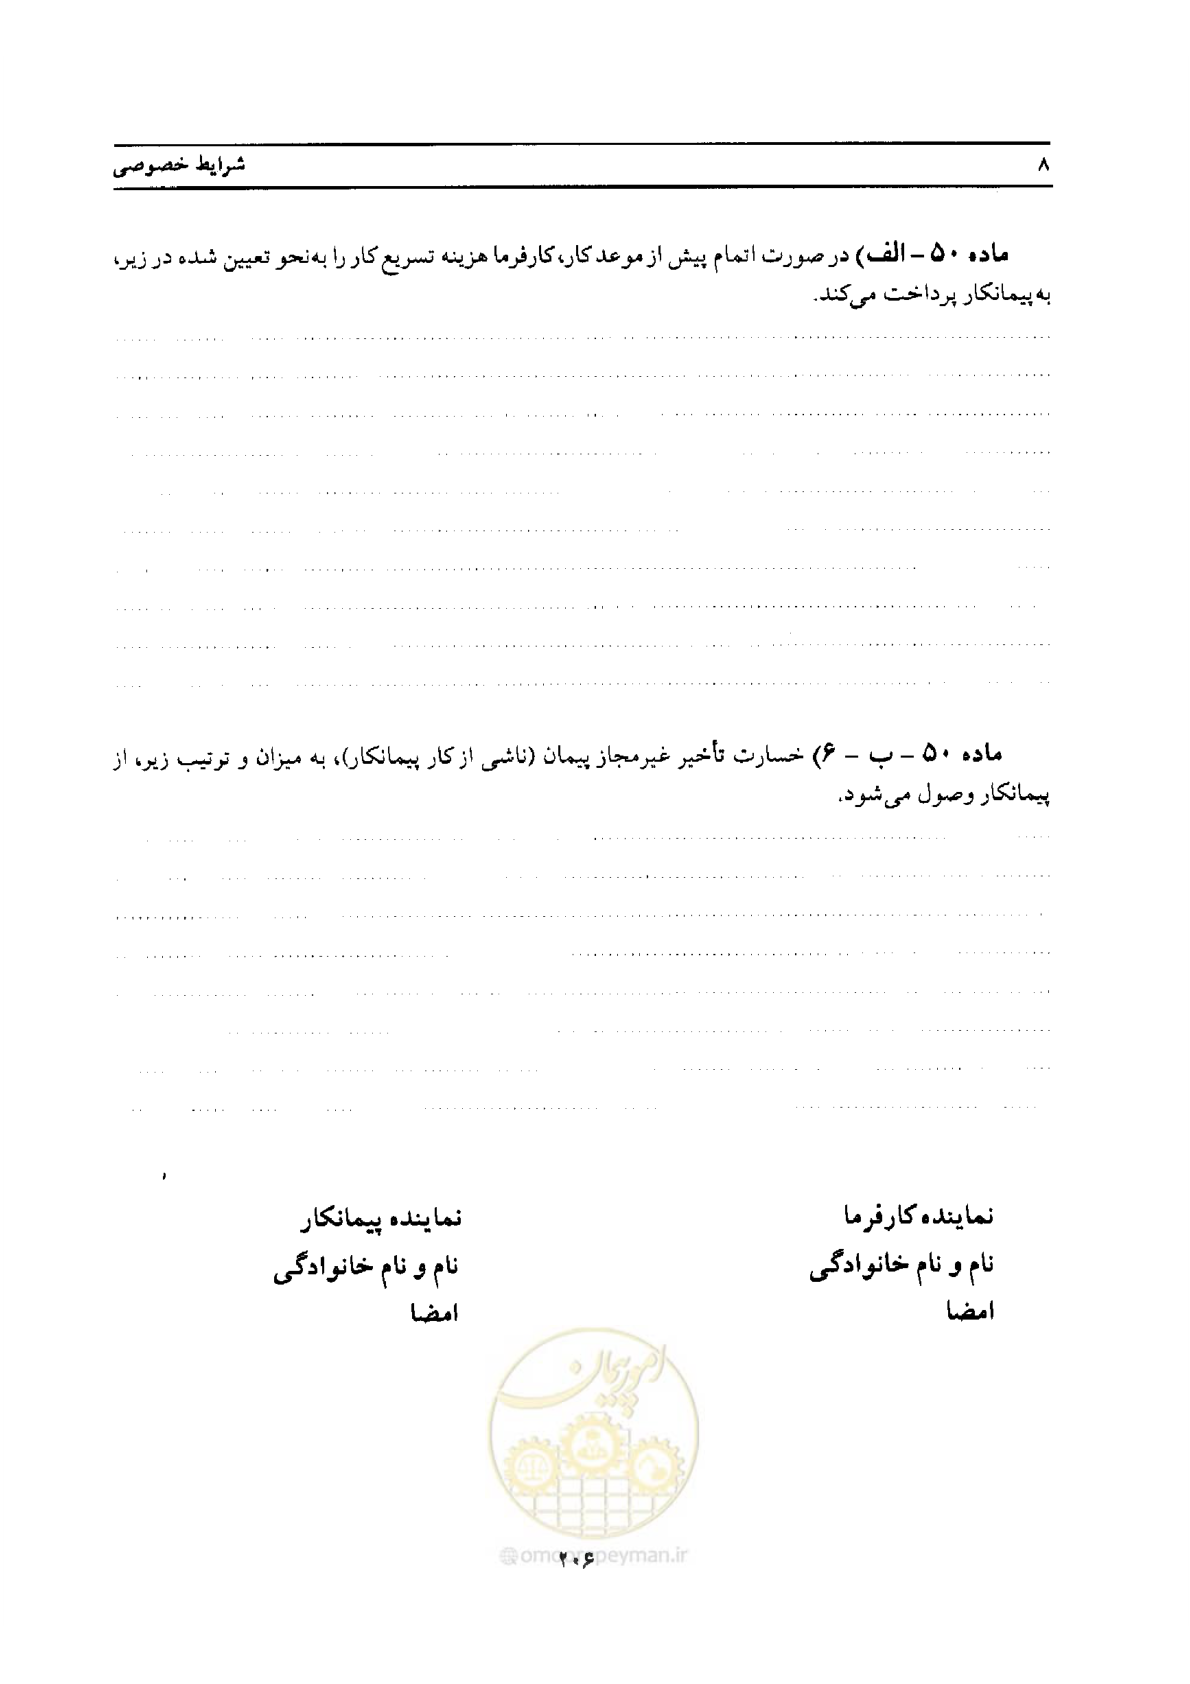 ۸ شرایط خصوصی
ماده ۵۰ – الف) در صورت اتمام پیش از موعد کار، کارفرما هزینه تسریع کار را به‌نحو تعیین شده در زیر،
به پیمانکار پرداخت می‌کند.
ماده ۵۰ – ب – ۶) خسارت تأخیر غیرمجاز پیمان (ناشی از کار پیمانکار)، به میزان و ترتیب زیر، از
پیمانکار وصول می‌شود.
نماینده کارفرما نماینده پیمانکار
نام و نام خانوادگی نام و نام خانوادگی
امضا امضا
امور پیمان
@omoorepeyman.ir
۲۰۶